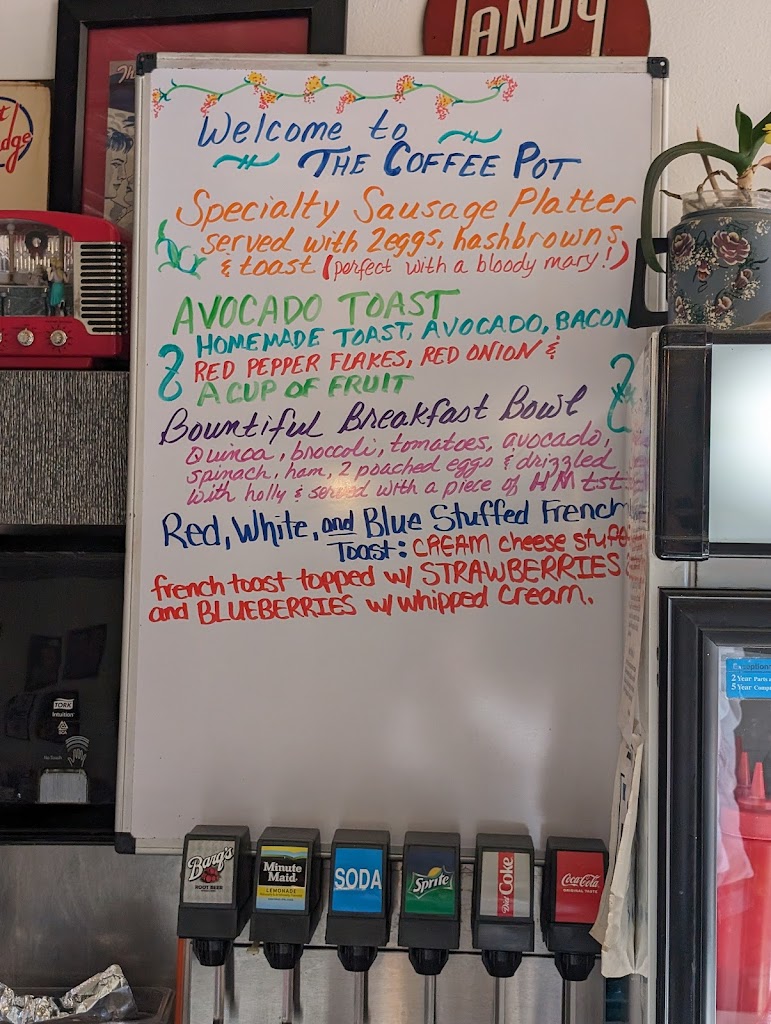 LANDY
Welcome to
THE COFFEE POT
Specialty Sausage Platter
served with 2eggs, hashbrowns,
& toast (perfect with a bloody mary!)
AVOCADO TOAST
HOMEMADE TOAST, AVOCADO, BACON
RED PEPPER FLAKES, RED ONION &
A CUP OF FRUIT
Bountiful Breakfast Bowl
Quinoa, broccoli, tomatoes, avocado,
spinach, ham, 2 poached eggs & drizzled
with holly & served with a piece of HM tst
Red, White, and Blue Stuffed French
Toast: CREAM cheese stuffe
french toast topped w/ STRAWBERRIES
and BLUEBERRIES w/ whipped cream.
Exception
2 Year Parts
5 Year Comp
TORK
Intuition
Barq's
ROOT BEER
Minute
Maid
LEMONADE
SODA
Sprite
Diet Coke
Coca-Cola
ORIGINAL TASTE